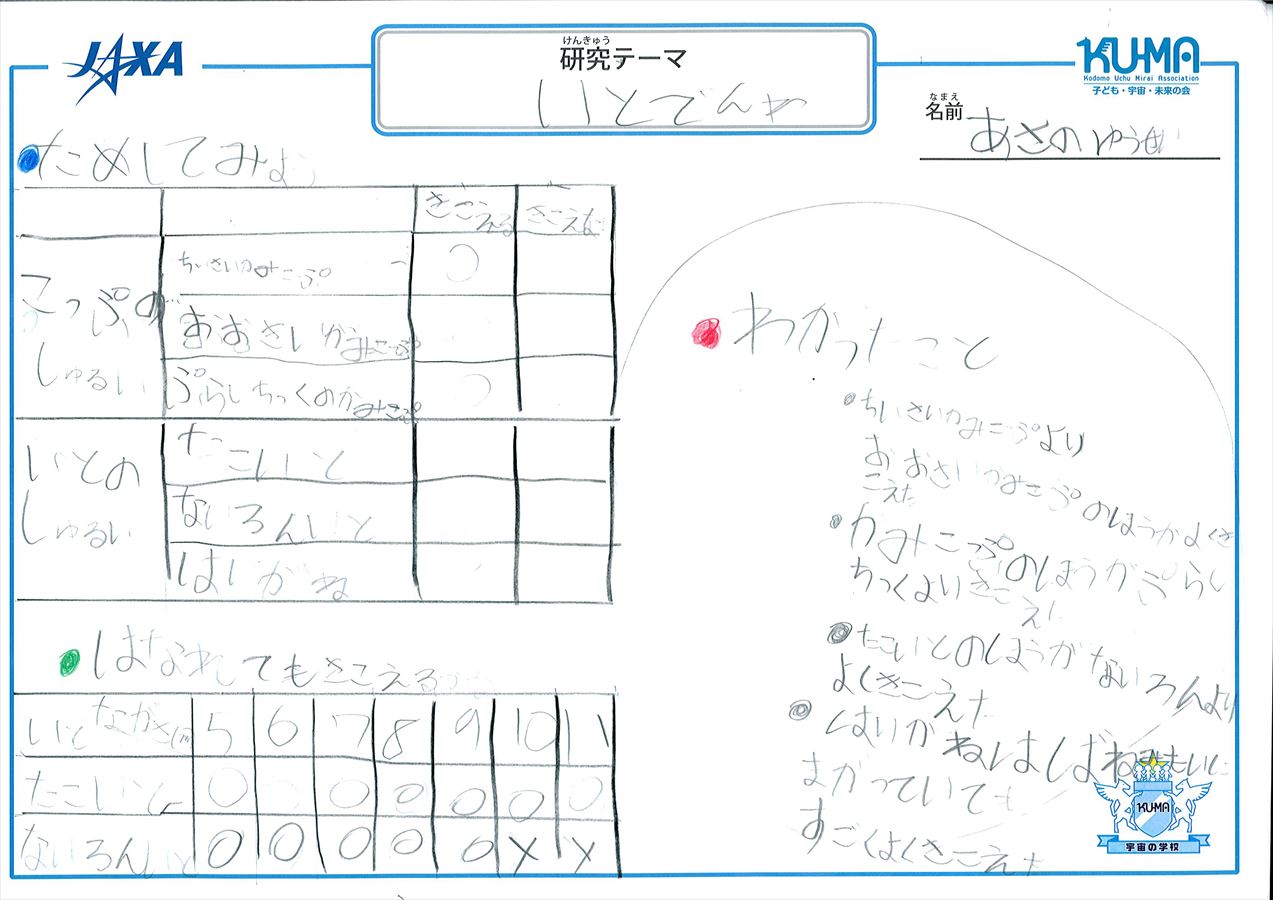 JAXA
けんきゅう
研究テーマ
いとでんわ
KU-MA
Kodomo Uchu Mirai Association
子ども・宇宙・未来の会
なまえ
名前 あさのゆうせい
ためしてみよう
きこえる きこえない
こっぷの
しゅるい
ちいさいかみこっぷ ○
おおきいかみこっぷ
ぷらしちっくのかみこっぷ ○
いとの
しゅるい
たこいと
ないろんいと
はりがね
はなれてもきこえるかな
いと ながさ(m) 5 6 7 8 9 10 11
たこいと ○ ○ ○ ○ ○ ○ ○
ないろんいと ○ ○ ○ ○ ○ × ×
わかったこと
ちいさいかみこっぷより
おおきいかみこっぷのほうかよくき
こえた
かみこっぷのほうがぷらし
ちっくよりきこ
えた
たこいとのほうがないろんより
よくきこえた
はりがねはしばねみたいに
まがっていても
すごくよくきこえた
KUMA
宇宙の学校